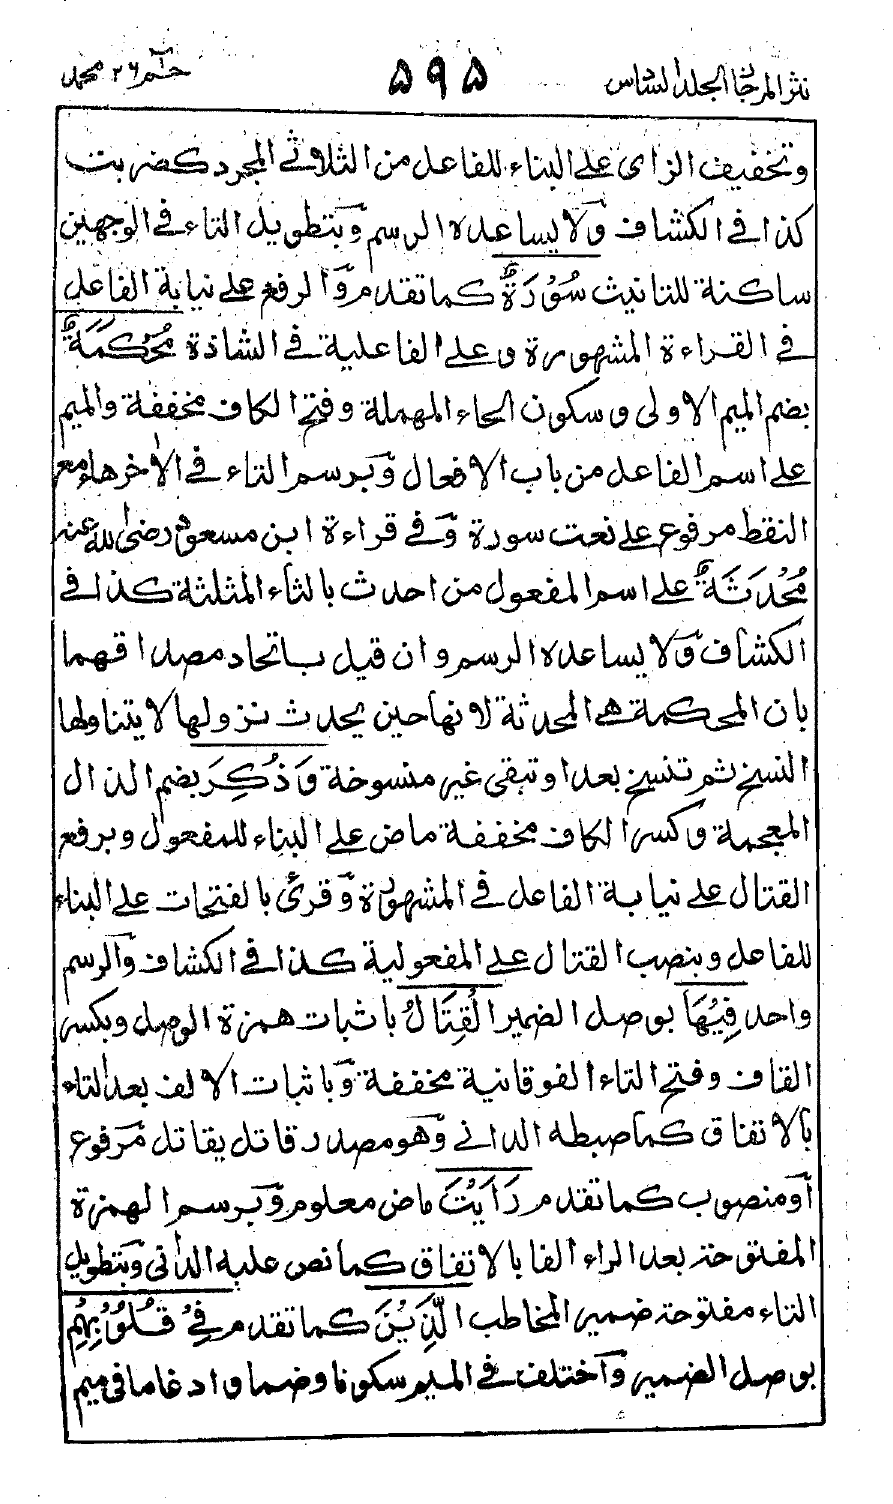 نثر المرجان المجلد السادس ۵۹۵ حٰم ۲۶ محمد
وتخفيف الزاى على البناء للفاعل من الثلاثي المجرد كضربت
كذا في الكشاف ولا يساعده الرسم وبتطويل التاء في الوجهين
ساكنة للتانيث سُوْرَةٌ كما تقدم والرفع على نيابة الفاعل
في القراءة المشهورة وعلى الفاعلية في الشاذة مُحْكَمَةٌ
بضم الميم الاولى وسكون الحاء المهملة وفتح الكاف مخففة والميم
على اسم الفاعل من باب الافعال وبرسم التاء في الاخر هاء مع
النقط مرفوع على نعت سورة وفي قراءة ابن مسعود رضى الله عنه
مُحْدَثَةٌ على اسم المفعول من احدث بالثاء المثلثة كذا في
الكشاف ولا يساعده الرسم وان قيل باتحاد مصداقهما
بان المحكمة هي المحدثة لانها حين يحدث نزولها لا يتناولها
النسخ ثم تنسخ بعد او تبقى غير منسوخة وَذُكِرَ بضم الذال
المعجمة وكسر الكاف مخففة ماض على البناء للمفعول وبرفع
القتال على نيابة الفاعل في المشهورة وقرئ بالفتحات على البناء
للفاعل وبنصب القتال على المفعولية كذا في الكشاف والرسم
واحد فِيْهَا بوصل الضمير الْقِتَالُ باثبات همزة الوصل وبكسر
القاف وفتح التاء الفوقانية مخففة وباثبات الالف بعد التاء
بالاتفاق كما ضبطه الداني وهو مصدر قاتل يقاتل مرفوع
او منصوب كما تقدم رَاَيْتَ ماض معلوم وبرسم الهمزة
المفتوحة بعد الراء الفا بالاتفاق كما نص عليه الداني وبتطويل
التاء مفتوحة ضمير المخاطب الَّذِيْنَ كما تقدم فِيْ قُلُوْبِهِمْ
بوصل الضمير واختلف في الميم سكونا وضما وادغاما في ميم